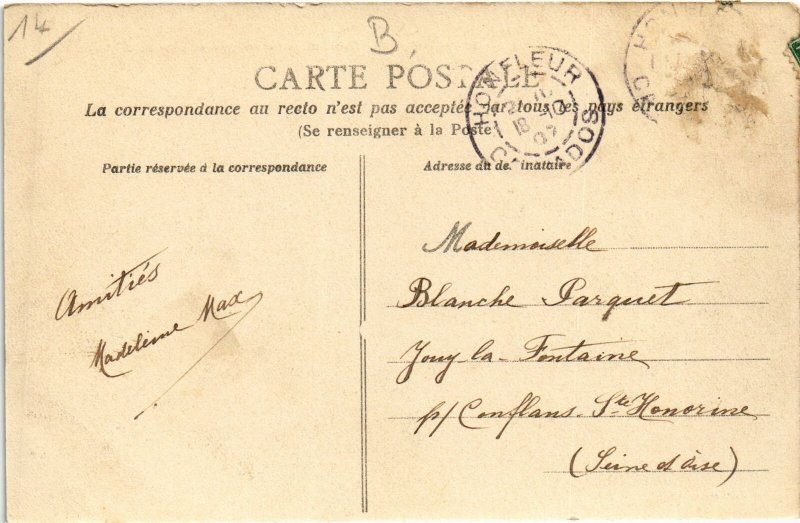 14
B
CARTE POSTALE
La correspondance au recto n'est pas acceptée par tous les pays étrangers
(Se renseigner à la Poste
HONFLEUR
18 -10
07
CALVADOS
HONFL
CA
Partie réservée à la correspondance
Adresse du de inataire
Mademoiselle
Blanche Parquet
Jouy-la-Fontaine
p/ Conflans-Ste Honorine
(Seine et Oise)
Amitiés
Madeleine Max